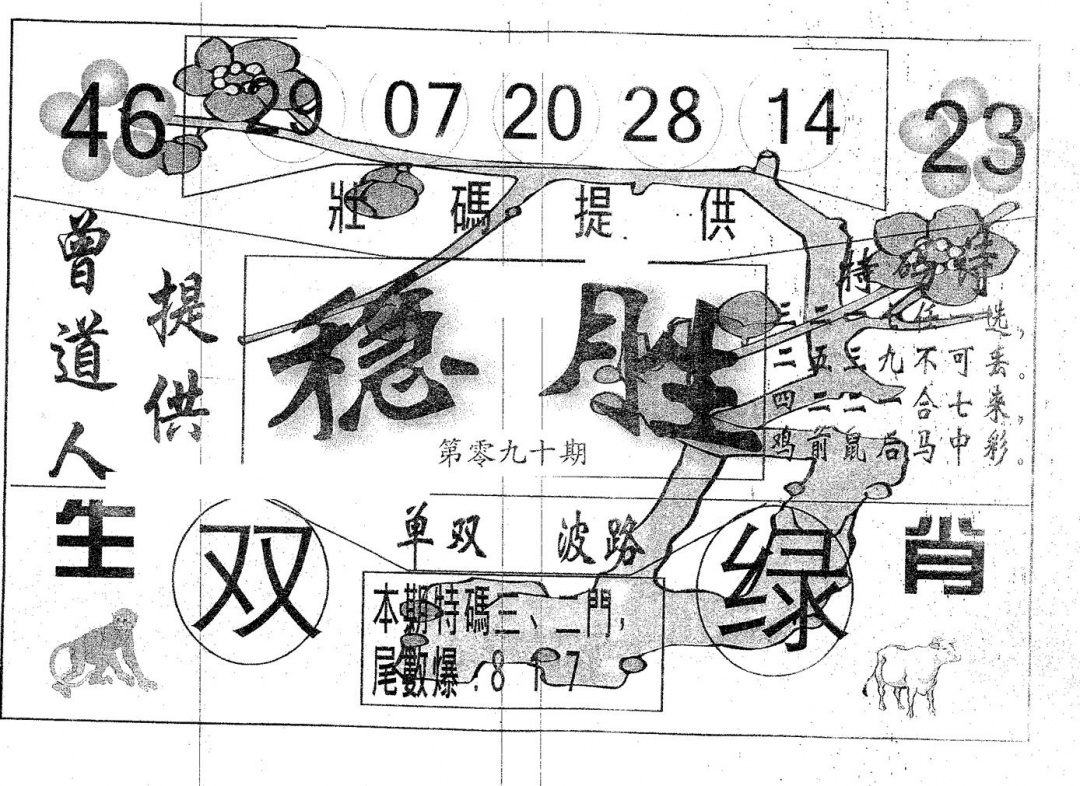 46 29 07 20 28 14 23
壯碼提供
曾道人
提供
特码诗
三二一七任一选，
二五三九不可丢。
四二二一合七来，
鸡前鼠后马中彩。
稳胜
第零九十期
生肖
双
单双
波路
绿
本期特碼三、二門，
尾數爆：8 1 7